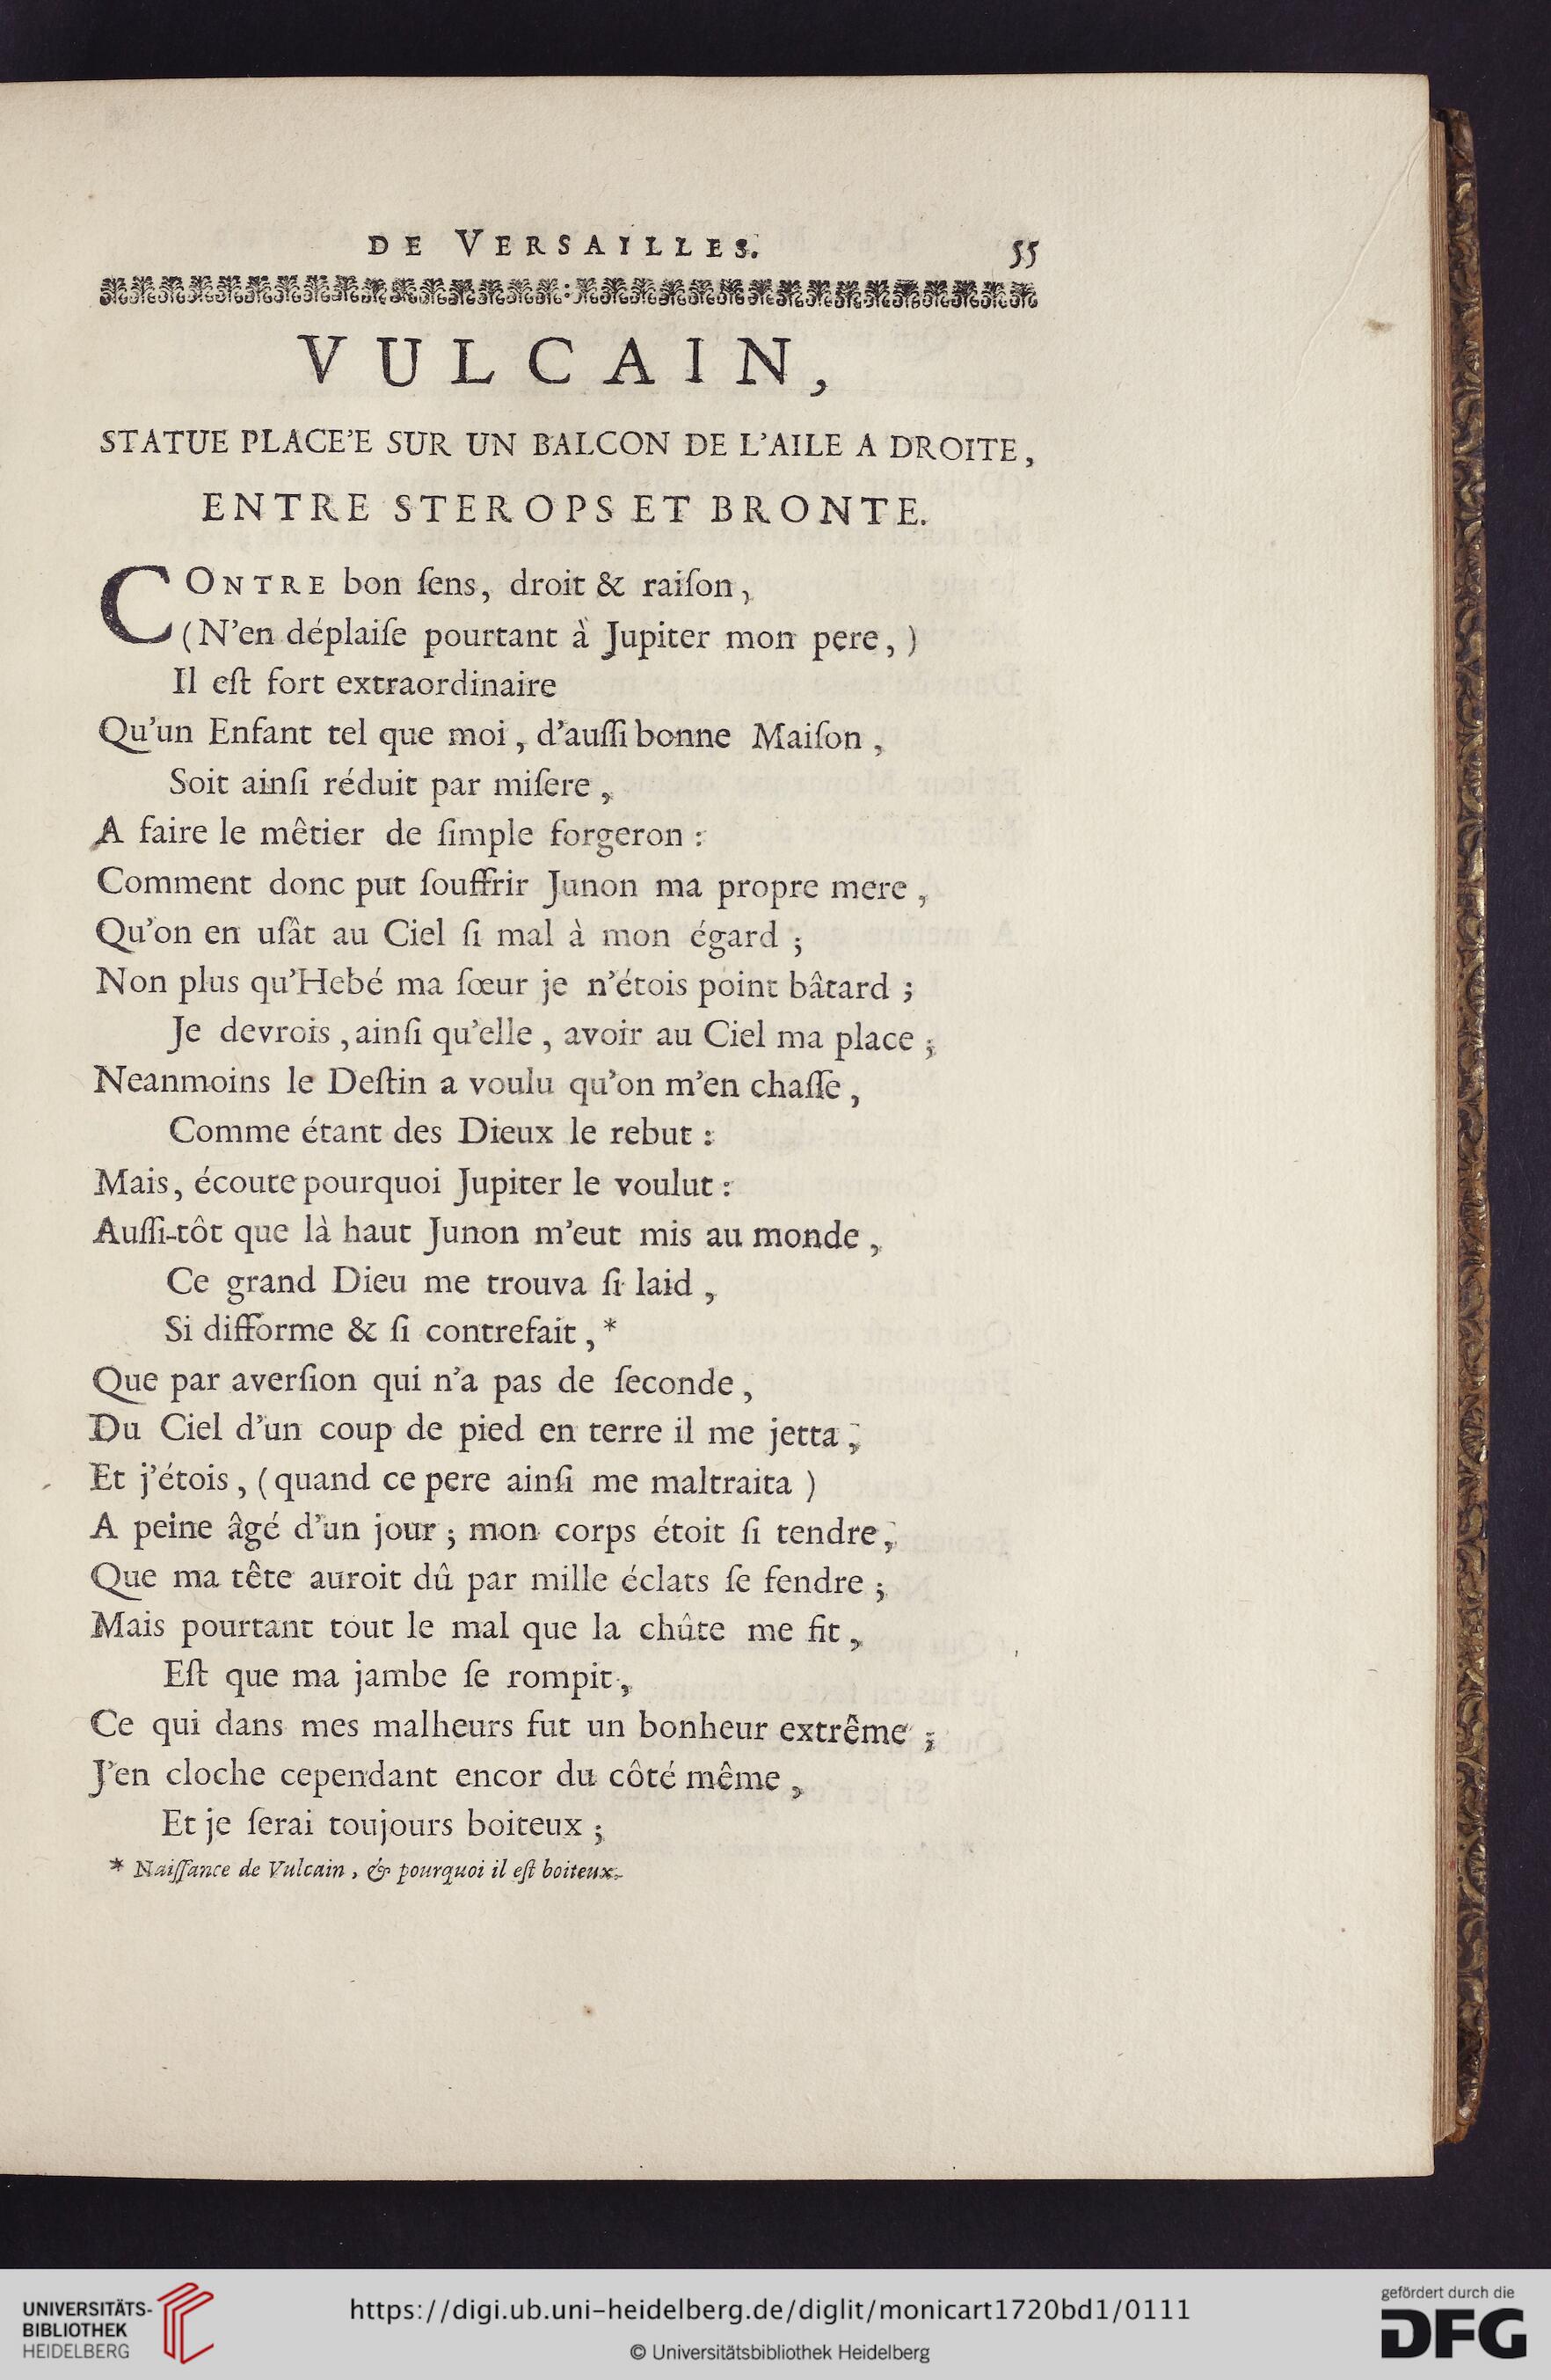 DE VERSAILLES. 55
VULCAIN,
STATUE PLACE'E SUR UN BALCON DE L'AILE A DROITE,
ENTRE STEROPS ET BRONTE.
CONTRE bon ſens, droit & raiſon,
(N'en déplaiſe pourtant à Jupiter mon pere,)
Il eſt fort extraordinaire
Qu'un Enfant tel que moi, d'auſſi bonne Maiſon,
Soit ainſi réduit par miſere,
A faire le mêtier de ſimple forgeron :
Comment donc put ſouffrir Junon ma propre mere,
Qu'on en uſât au Ciel ſi mal à mon égard ;
Non plus qu'Hebé ma ſœur je n'étois point bâtard ;
Je devrois, ainſi qu'elle, avoir au Ciel ma place ;
Neanmoins le Deſtin a voulu qu'on m'en chaſſe,
Comme étant des Dieux le rebut :
Mais, écoute pourquoi Jupiter le voulut :
Auſſi-tôt que là haut Junon m'eut mis au monde,
Ce grand Dieu me trouva ſi laid,
Si difforme & ſi contrefait, *
Que par averſion qui n'a pas de ſeconde,
Du Ciel d'un coup de pied en terre il me jetta,
Et j'étois, (quand ce pere ainſi me maltraita)
A peine âgé d'un jour ; mon corps étoit ſi tendre,
Que ma tête auroit dû par mille éclats ſe fendre ;
Mais pourtant tout le mal que la chûte me fit,
Eſt que ma jambe ſe rompit,
Ce qui dans mes malheurs fut un bonheur extrême ;
J'en cloche cependant encor du côté même,
Et je ſerai toujours boiteux ;
* Naiſſance de Vulcain, & pourquoi il eſt boiteux.
UNIVERSITÄTS-
BIBLIOTHEK
HEIDELBERG
https://digi.ub.uni-heidelberg.de/diglit/monicart1720bd1/0111
© Universitätsbibliothek Heidelberg
gefördert durch die
DFG